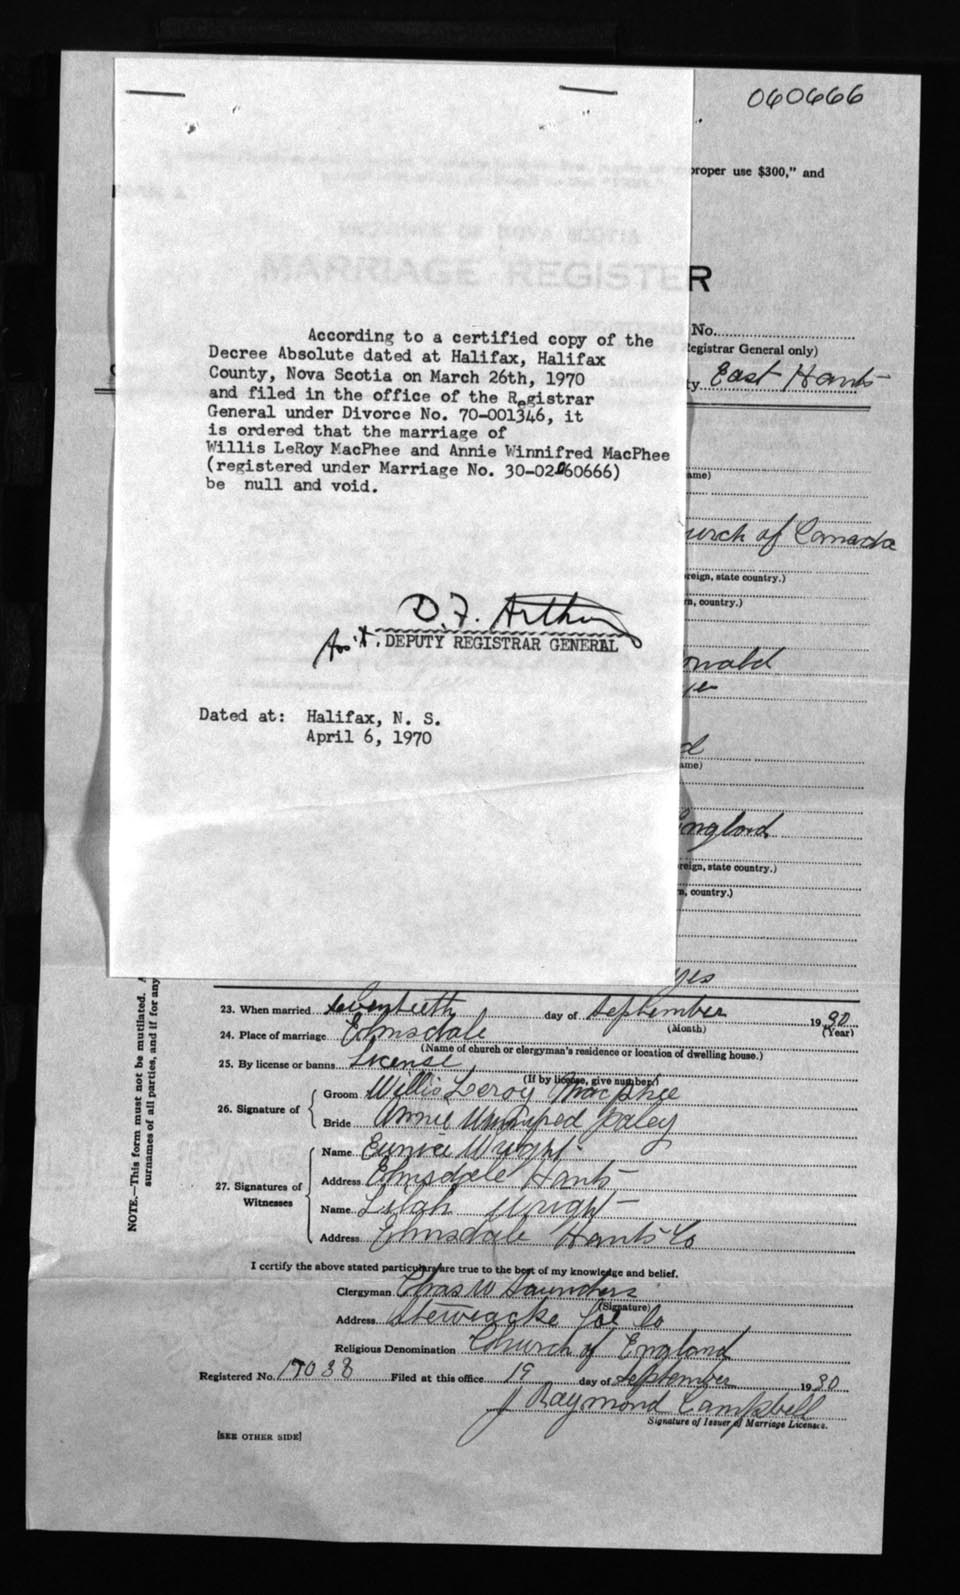 060666
proper use $300," and
PROVINCE OF NOVA SCOTIA
MARRIAGE REGISTER
No.
Registrar General only)
ty East Hants
According to a certified copy of the
Decree Absolute dated at Halifax, Halifax
County, Nova Scotia on March 26th, 1970
and filed in the office of the Registrar
General under Divorce No. 70-001346, it
is ordered that the marriage of
Willis LeRoy MacPhee and Annie Winnifred MacPhee
(registered under Marriage No. 30-02-060666)
be null and void.
ame)
urch of Canada
reign, state country.)
n, country.)
D. F. Arthur
Ass't. DEPUTY REGISTRAR GENERAL
onald
ye
Dated at: Halifax, N. S.
April 6, 1970
d
ame)
England
reign, state country.)
n, country.)
yes
23. When married seventeeth day of September 1930
(Month) (Year)
24. Place of marriage Elmsdale
(Name of church or clergyman's residence or location of dwelling house.)
25. By license or banns License
(If by license, give number)
26. Signature of Groom Willis Leroy MacPhee
Bride Annie Winnifred Paley
27. Signatures of Witnesses
Name Eunice Wright
Address Elmsdale Hants
Name Lilah Wright
Address Elmsdale Hants Co
I certify the above stated particulars are true to the best of my knowledge and belief.
Clergyman Chas W Saunders
(Signature)
Address Stewiacke Col Co
Religious Denomination Church of England
Registered No. 17038 Filed at this office 19 day of September 1930
J Raymond Campbell
Signature of Issuer of Marriage Licenses.
[SEE OTHER SIDE]
NOTE.—This form must not be mutilated.
surnames of all parties, and if for any